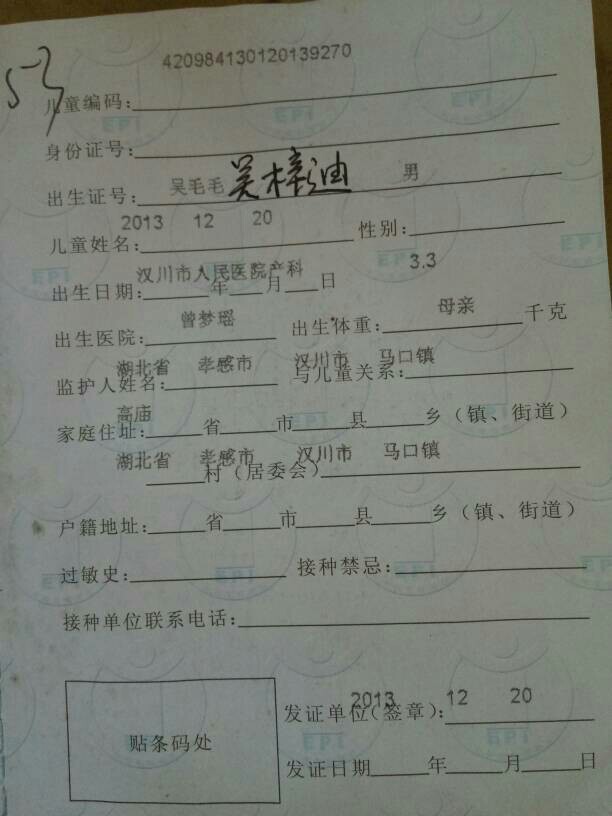 420984130120139270
儿童编码:
身份证号:
出生证号: 吴毛毛 吴梓迪 男
2013 12 20
儿童姓名: 性别:
汉川市人民医院产科 3.3
出生日期: 年 月 日
曾梦瑶 母亲
出生医院: 出生体重: 千克
湖北省 孝感市 汉川市 马口镇
监护人姓名: 与儿童关系:
高庙
家庭住址: 省 市 县 乡（镇、街道）
湖北省 孝感市 汉川市 马口镇
村（居委会）
户籍地址: 省 市 县 乡（镇、街道）
过敏史: 接种禁忌:
接种单位联系电话:
2013 12 20
贴条码处 发证单位(签章):
发证日期 年 月 日
EPI